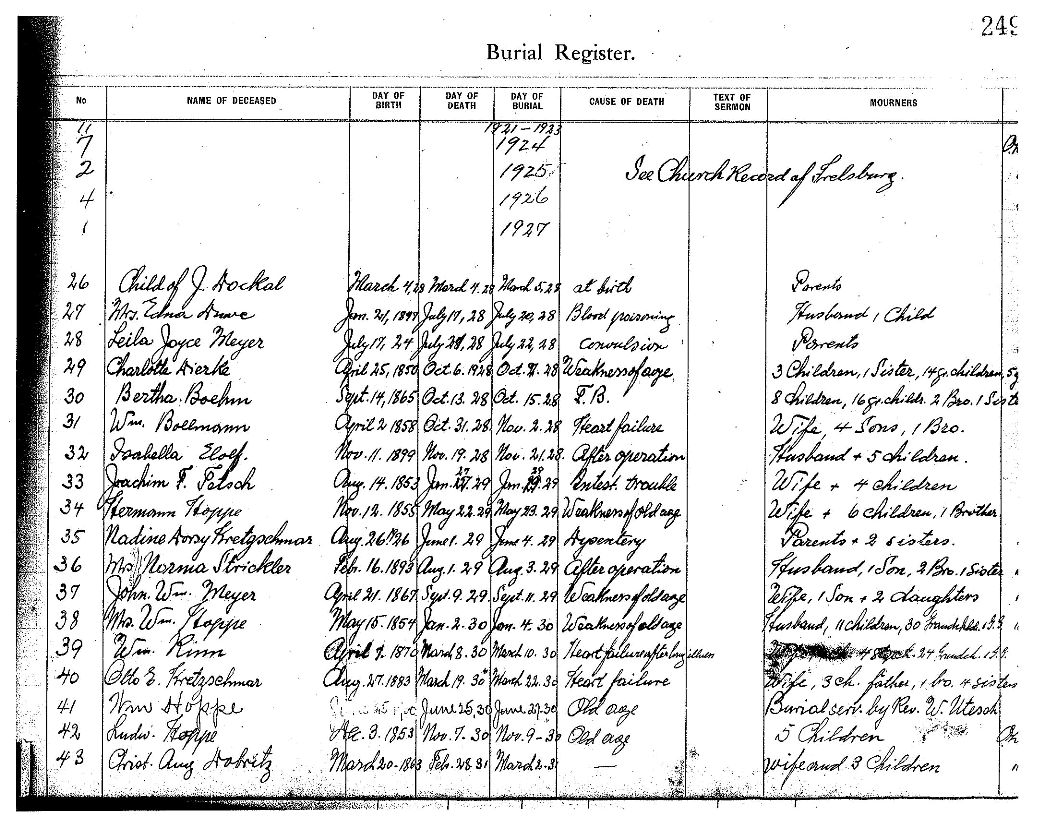 249
Burial Register.
No NAME OF DECEASED DAY OF BIRTH DAY OF DEATH DAY OF BURIAL CAUSE OF DEATH TEXT OF SERMON MOURNERS
11 1921-1923
7 1924
2 1925 See Church Record of Frelsburg.
4 1926
1 1927
26 Child of J. Dockal March 4, 28 March 4. 28 March 5, 28 at birth Parents
27 Mrs. Edna Duwe Jan. 21, 1897 July 17, 28 July 20, 28 Blood poisoning Husband, 1 Child
28 Leila Joyce Meyer July 17, 24 July 21, 28 July 22, 28 convulsion Parents
29 Charlotte Dierke April 25, 1850 Oct. 6. 1928 Oct. 28 Weakness of age 3 Children, 1 Sister, 14 g. children, 5 g
30 Bertha Boehm Sept. 14, 1865 Oct. 13. 28 Oct. 15. 28 T. B. 8 Children, 16 gr. childr. 2 Bro. 1 Siste
31 Wm. Bollmann April 2 1858 Oct. 31. 28 Nov. 2. 28 Heart failure Wife, 4 Sons, 1 Bro.
32 Isabella Nov. 11. 1899 Nov. 19. 28 Nov. 21. 28 After operation Husband + 5 children.
33 Joachim F. Fetsch Aug. 14. 1853 Jan. 27 29 Jan. 29 Intest. trouble Wife + 4 children
34 Hermann Hoppe Nov. 12. 1855 May 22. 29 May 23. 29 Weakness of old age Wife + 6 children, 1 Brother
35 Nadine Dorsy Kretzschmar Aug. 26th 26 June 1. 29 June 4. 29 Dysentery Parents + 2 sisters.
36 Mrs. Norma Strickler Feb. 16. 1893 Aug. 1. 29 Aug. 3. 29 After operation Husband, 1 Son, 2 Bro. 1 Sister "
37 John. Wm. Meyer April 21. 1867 Sept. 9. 29 Sept. 11. 29 Weakness of old age Wife, 1 Son + 2 daughters "
38 Mrs. Wm. Hoppe May 15. 1854 Jan. 2. 30 Jan. 4. 30 Weakness of old age Husband, 11 children, 30 "
39 Wm. Rinn April 7. 1870 March 8. 30 March 10. 30 Heart failure after long illness 24 "
40 Otto E. Kretzschmar Aug. 27. 1883 March 19. 30 March 22. 30 Heart failure Wife, 3 ch. father, 1 bro. 4 sisters
41 Wm Hoppe June 25, 30 June 27, 30 Old age Burial serv. by Rev. W. Utesch
42 Ludw. Hoppe 3. 1853 Nov. 7. 30 Nov. 9 - 30 Old age 5 Children
43 Christ. Aug Dobritz March 20. 1863 Feb. 28. 31 March 2. 31 — wife and 3 Children "